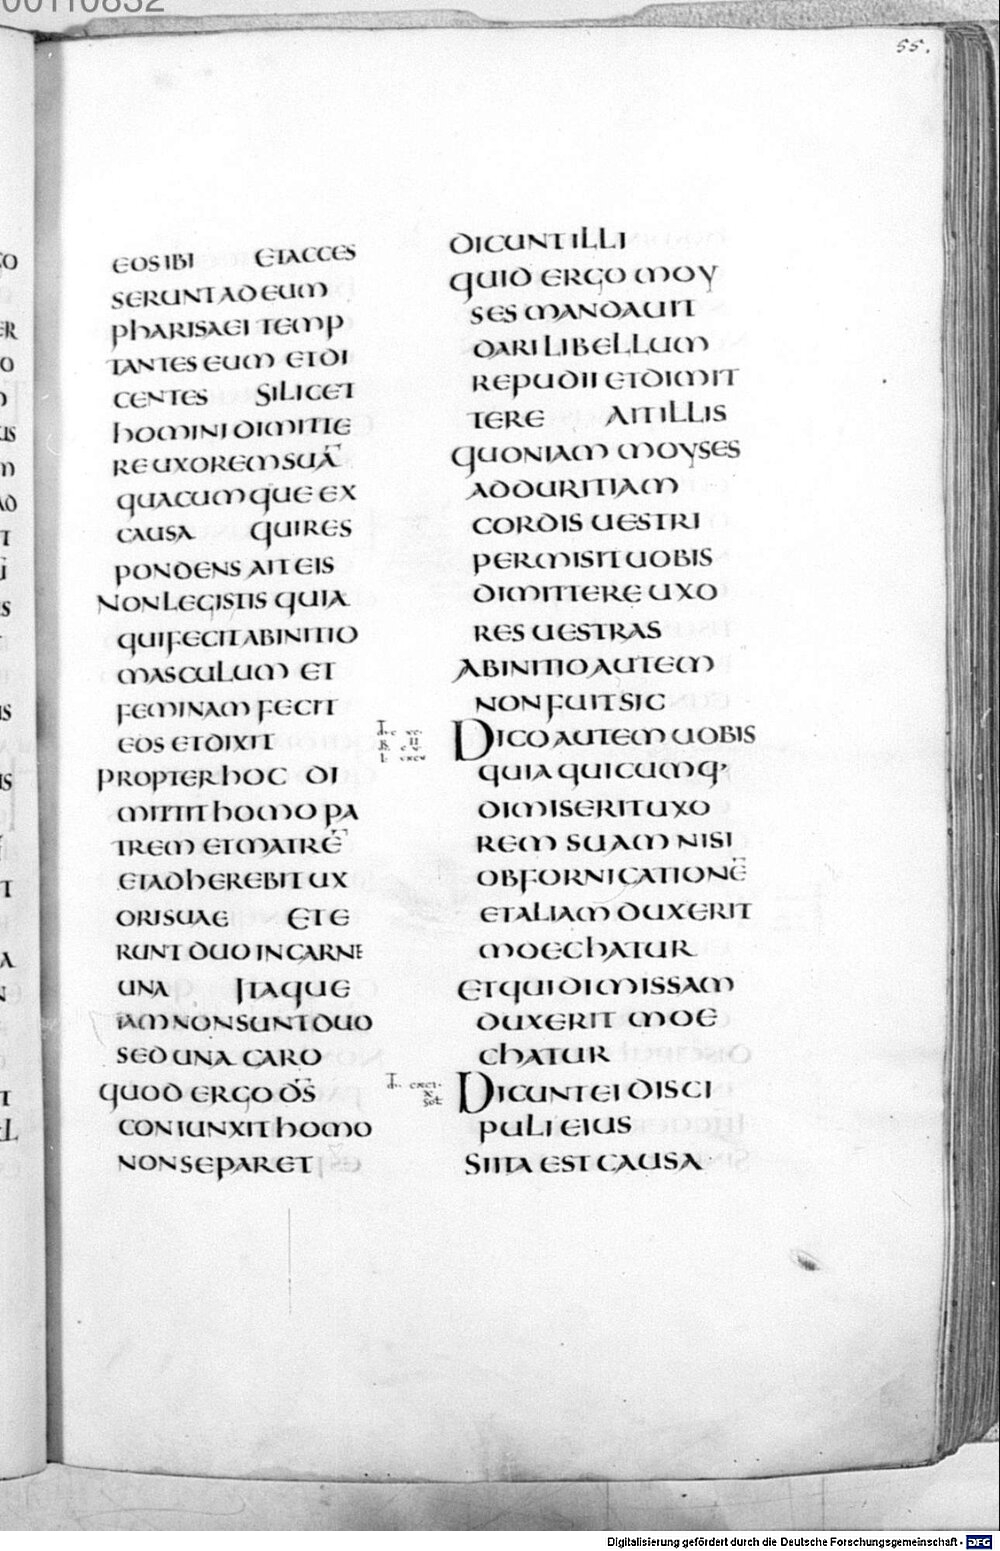 55.
EOS IBI ET ACCES
SERUNT AD EUM
PHARISAEI TEMP
TANTES EUM ET DI
CENTES SI LICET
HOMINI DIMITTE
RE UXOREM SUĀ
QUACUMQUE EX
CAUSA QUI RES
PONDENS AIT EIS
NON LEGISTIS QUIA
QUI FECIT AB INITIO
MASCULUM ET
FEMINAM FECIT
EOS ET DIXIT
PROPTER HOC DI
MITTIT HOMO PA
TREM ET MATRĒ
ET ADHEREBIT UX
ORI SUAE ET E
RUNT DUO IN CARNE
UNA ITAQUE
IAM NON SUNT DUO
SED UNA CARO
QUOD ERGO D̄S̄
CONIUNXIT HOMO
NON SEPARET
DICUNT ILLI
QUID ERGO MOY
SES MANDAUIT
DARI LIBELLUM
REPUDII ET DIMIT
TERE AIT ILLIS
QUONIAM MOYSES
AD DURITIAM
CORDIS UESTRI
PERMISIT UOBIS
DIMITTERE UXO
RES UESTRAS
AB INITIO AUTEM
NON FUIT SIC
DICO AUTEM UOBIS
QUIA QUICUMQ'
DIMISERIT UXO
REM SUAM NISI
OB FORNICATIONĒ
ET ALIAM DUXERIT
MOECHATUR
ET QUI DIMISSAM
DUXERIT MOE
CHATUR
DICUNT EI DISCI
PULI EIUS
SI ITA EST CAUSA
Digitalisierung gefördert durch die Deutsche Forschungsgemeinschaft - DFG